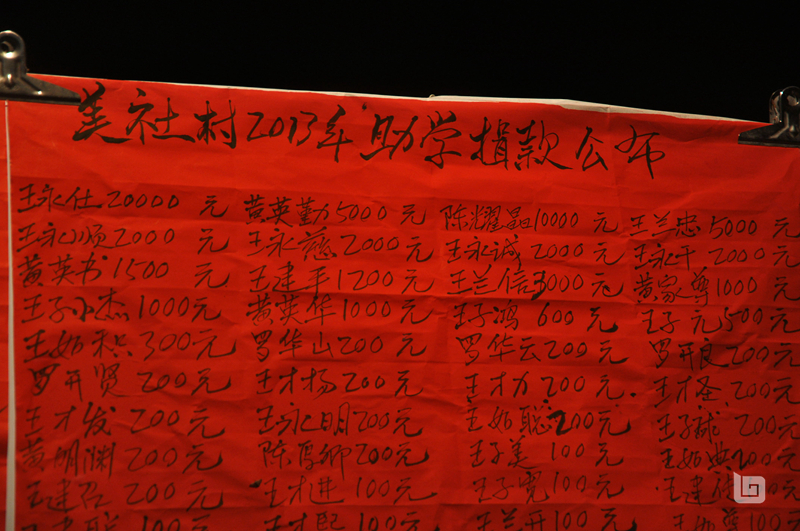 美社村2013年助学捐款公布
王永仕20000元 黄英勤5000元 陈耀晶10000元 王兰忠5000元
王永顺2000元 王永慈2000元 王永诚2000元 王永干2000元
黄英书1500元 王建平1200元 王兰信3000元 黄家尊1000元
王子小杰1000元 黄英华1000元 王子鸿600元 王子元500元
王如积300元 罗华山200元 罗华云200元 罗开良200元
罗开贤200元 王才杨200元 王才力200元 王才圣200元
王才发200元 王永明200元 王如聪200元 王子球200元
黄明渊200元 陈厚卿200元 王子美100元 王如典200元
王建召200元 王才进100元 王子宽100元 王建 100元
100元 王才熙100元 王兰开100元 100元